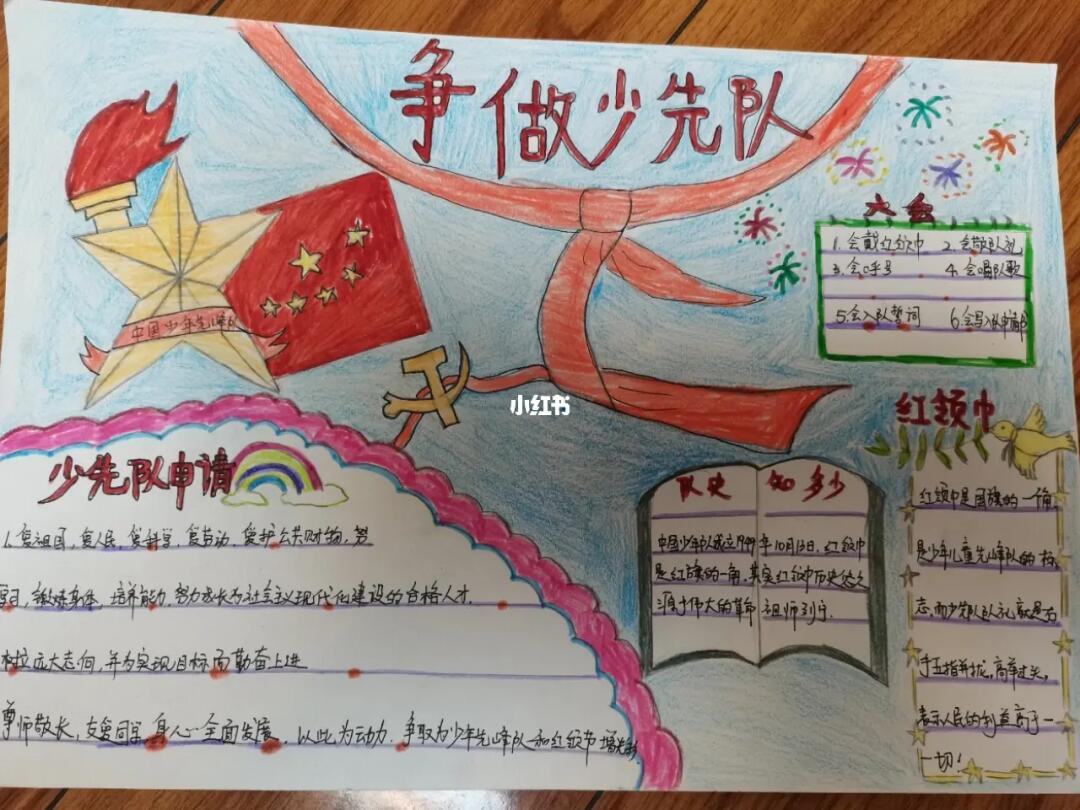 争做少先队
中国少年先锋队
六会
1.会戴红领巾 2.会敬队礼
3.会呼号 4.会唱队歌
5.会入队誓词 6.会写入队申请书
小红书
红领巾
红领巾是国旗的一角,
是少年儿童先峰队的标
志,而少先队队礼就是右
手五指并拢,高举过头,
表示人民的利益高于一
一切!
少先队申请
1.爱祖国,爱人民,爱科学,爱劳动,爱护公共财物,努
习,锻炼身体,培养能力,努力成长为社会主义现代化建设的合格人才.
树立远大志向,并为实现目标而勤奋上进
尊师敬长,友爱同学,身心全面发展,以此为动力.争取为少年先峰队和红领巾增光
队史知多少
中国少年队成立1949年10月13日,红领巾
是红旗的一角,其实红领巾历史悠久
源于伟大的革命祖师列宁.